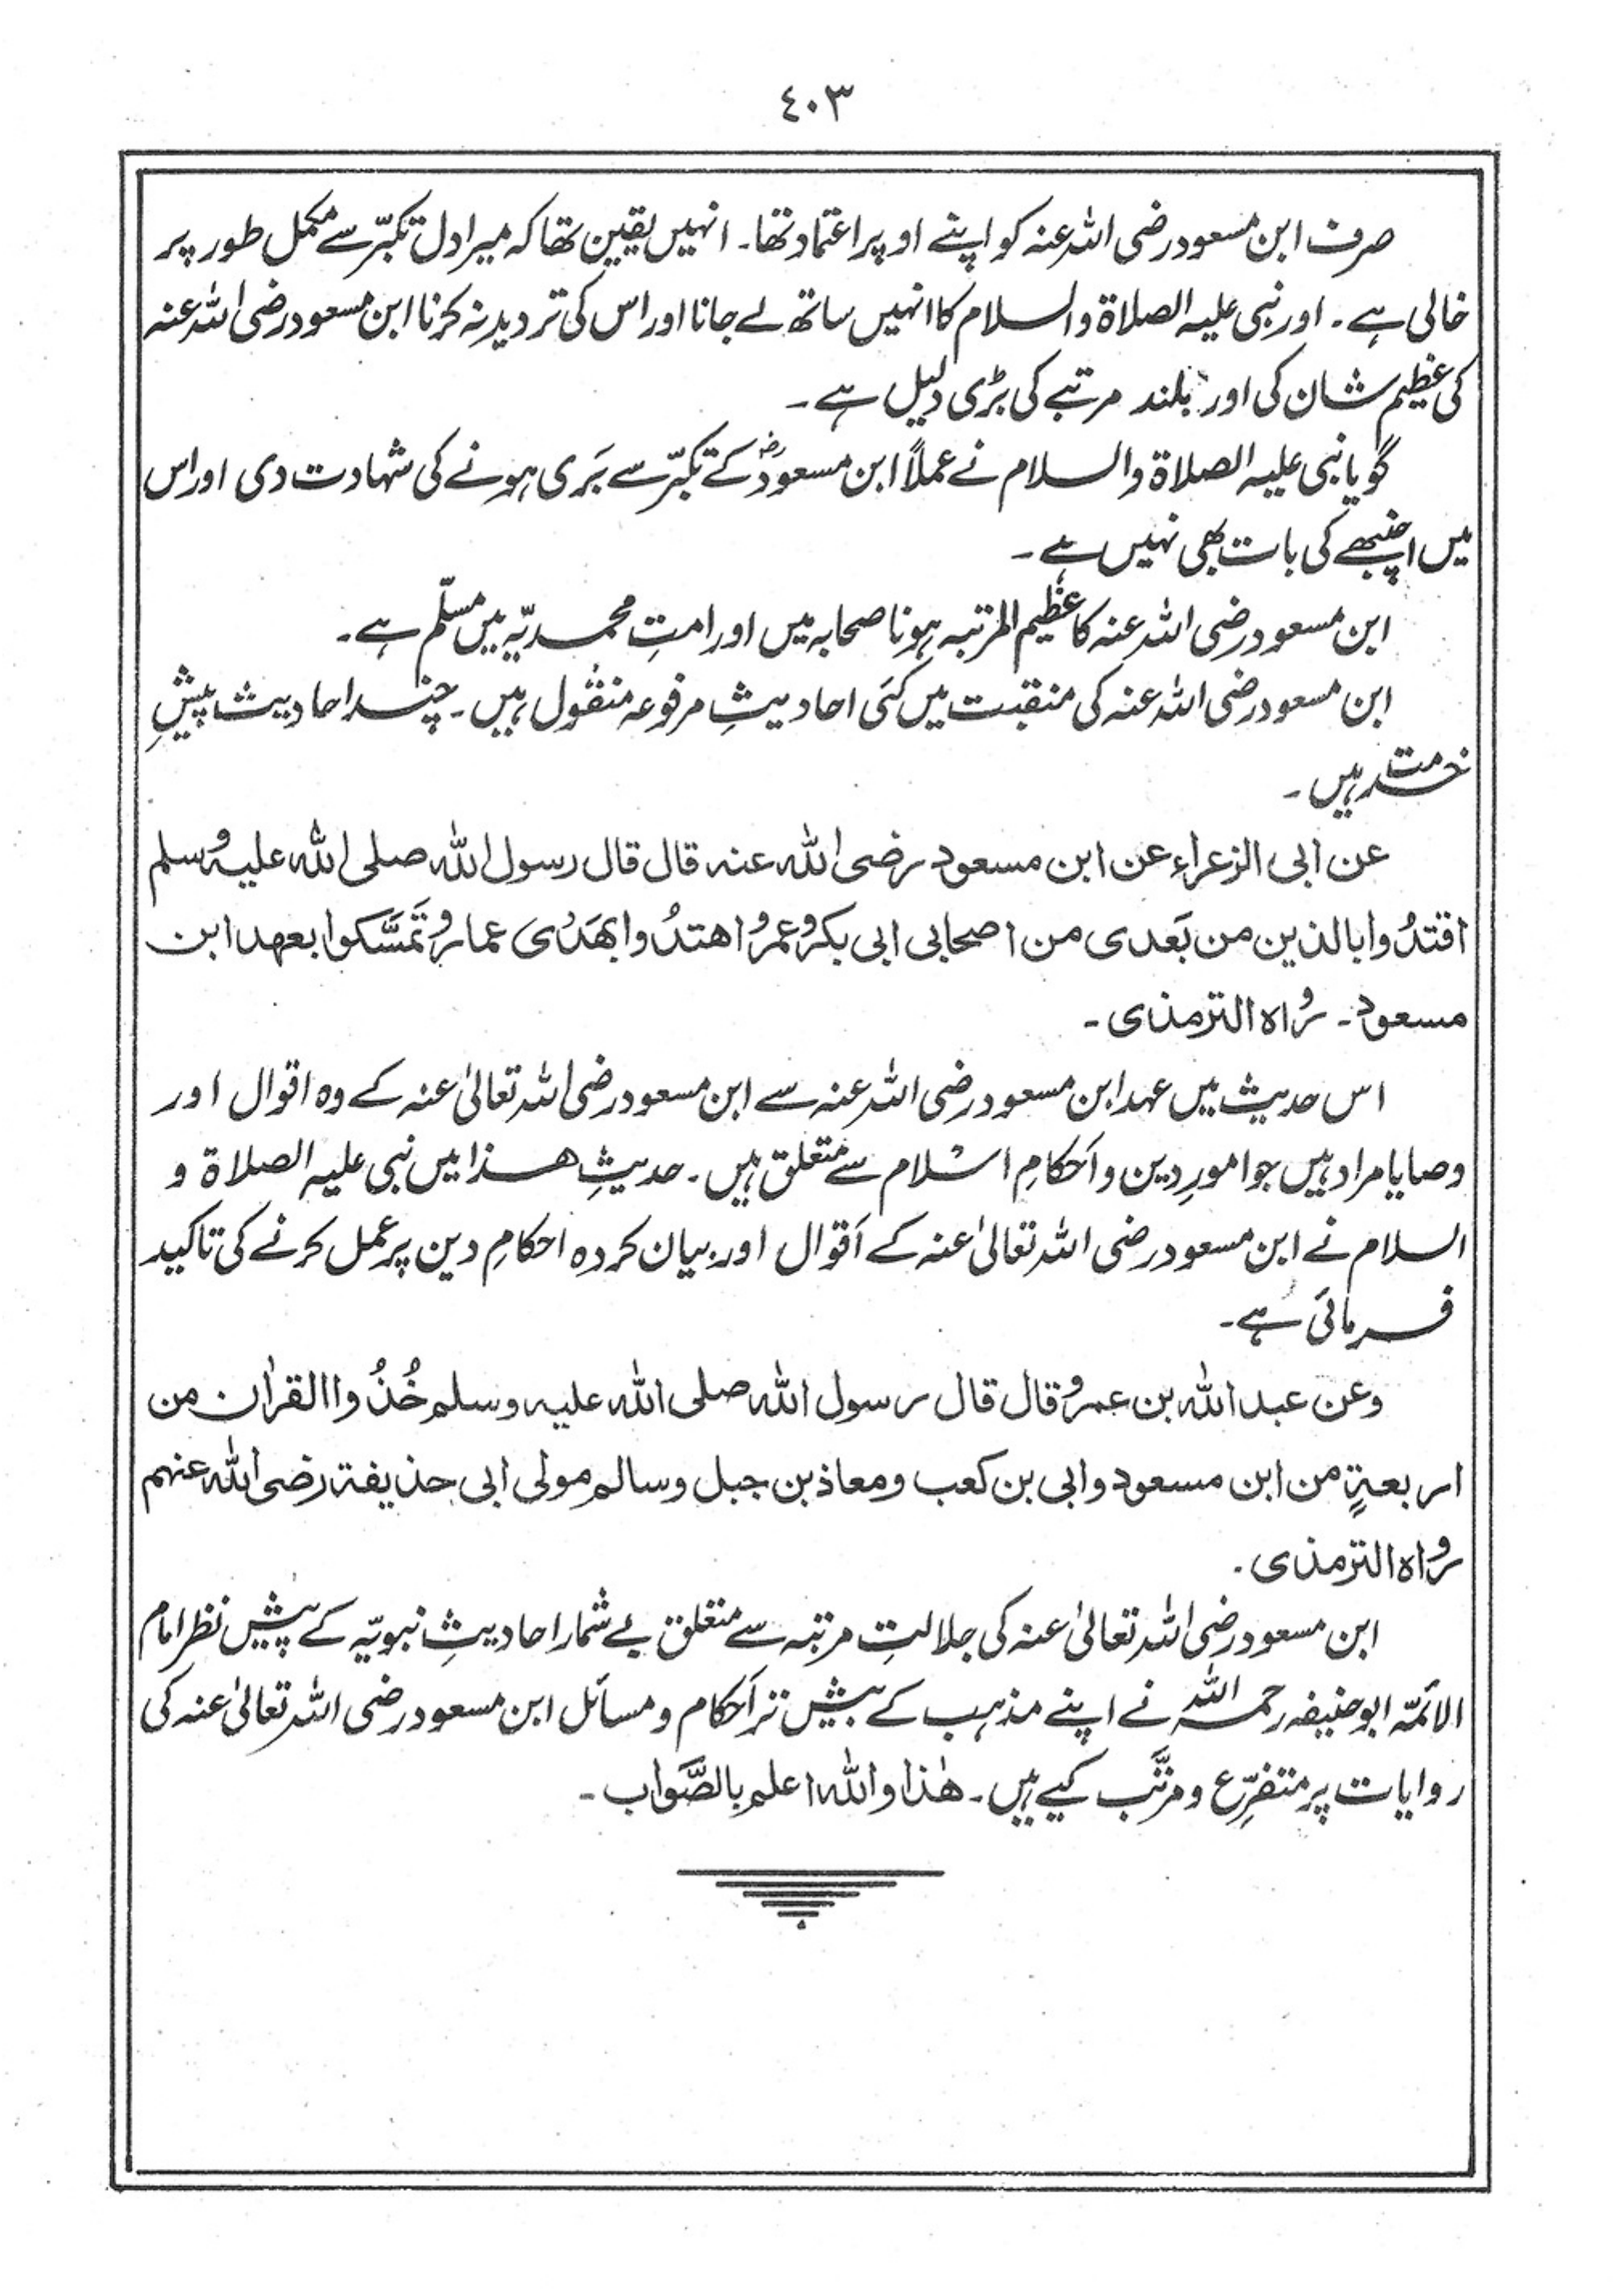 ٤٠٣
صرف ابن مسعود رضی اللہ عنہ کو اپنے اوپر اعتماد تھا۔ انہیں یقین تھا کہ میرا دل تکبّر سے مکمل طور پر
خالی ہے۔ اور نبی علیہ الصلاۃ والسلام کا انہیں ساتھ لے جانا اور اس کی تردید نہ کرنا ابن مسعود رضی اللہ عنہ
کی عظیم شان کی اور بلند مرتبے کی بڑی دلیل ہے۔
گویا نبی علیہ الصلاۃ والسلام نے عملاً ابن مسعودؓ کے تکبّر سے بَری ہونے کی شہادت دی اور اس
میں اچنبھے کی بات بھی نہیں ہے۔
ابن مسعود رضی اللہ عنہ کا عظیم المرتبہ ہونا صحابہ میں اور امتِ محمدیّہ میں مسلّم ہے۔
ابن مسعود رضی اللہ عنہ کی منقبت میں کئی احادیثِ مرفوعہ منقول ہیں۔ چند احادیث پیشِ
خدمت ہیں۔
عن ابی الزعراء عن ابن مسعود رضی اللہ عنہ قال قال رسول اللہ صلی اللہ علیہ وسلم
اقتدُوا بالذین من بَعدی من اصحابی ابی بکر وعمر واھتدُوا بھَدْی عمار وتَمَسَّکوا بعھد ابن
مسعود۔ رواہ الترمذی۔
اس حدیث میں عہد ابن مسعود رضی اللہ عنہ سے ابن مسعود رضی اللہ تعالیٰ عنہ کے وہ اقوال اور
وصایا مراد ہیں جو امورِ دین و اَحکامِ اسلام سے متعلق ہیں۔ حدیثِ ھذا میں نبی علیہ الصلاۃ و
السلام نے ابن مسعود رضی اللہ تعالیٰ عنہ کے اَقوال اور بیان کردہ احکامِ دین پر عمل کرنے کی تاکید
فرمائی ہے۔
وعن عبد اللہ بن عمرو قال قال رسول اللہ صلی اللہ علیہ وسلم خُذُوا القراٰن من
اربعةٍ من ابن مسعود وابی بن کعب ومعاذ بن جبل وسالم مولی ابی حذیفة رضی اللہ عنھم
رواہ الترمذی۔
ابن مسعود رضی اللہ تعالیٰ عنہ کی جلالتِ مرتبہ سے متعلق بے شمار احادیثِ نبویّہ کے پیش نظر امام
الائمّہ ابو حنیفہ رحمہ اللہ نے اپنے مذہب کے بیش تر اَحکام و مسائل ابن مسعود رضی اللہ تعالیٰ عنہ کی
روایات پر متفرِّع و مرتَّب کیے ہیں۔ ھٰذا واللہ اعلم بالصَّواب۔